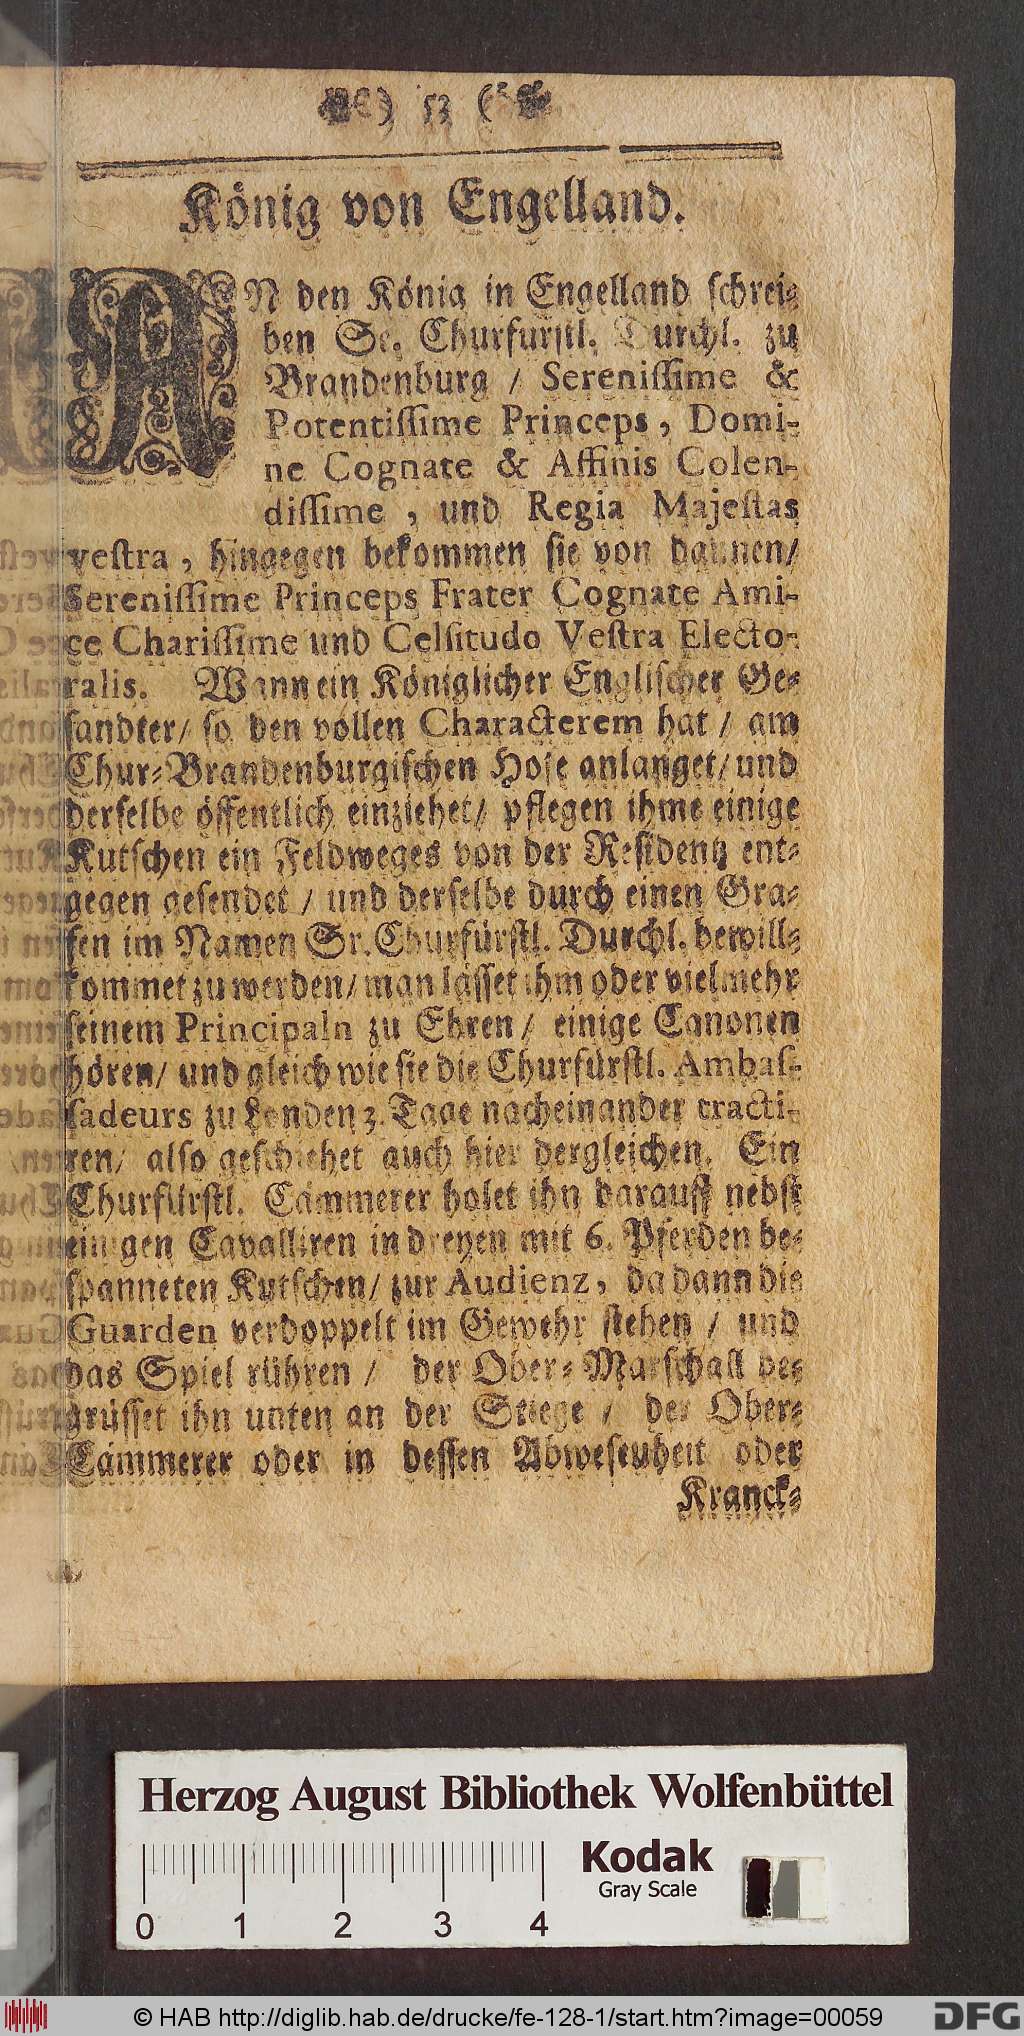 ) 53 (
König von Engelland.
AN den König in Engelland schrei-
ben Se. Churfürstl. Durchl. zu
Brandenburg / Serenissime &
Potentissime Princeps, Domi-
ne Cognate & Affinis Colen-
dissime, und Regia Majestas
vestra, hingegen bekommen sie von dannen/
Serenissime Princeps Frater Cognate Ami-
ce Charissime und Celsitudo Vestra Electo-
ralis. Wann ein Königlicher Englischer Ge-
sandter/ so den vollen Characterem hat / am
Chur-Brandenburgischen Hofe anlanget/ und
derselbe öffentlich einziehet/ pflegen ihme einige
Kutschen ein Feldweges von der Residentz ent-
gegen gesendet / und derselbe durch einen Gra-
fen im Namen Sr. Churfürstl. Durchl. bewill-
kommet zu werden/ man lässet ihm oder vielmehr
seinem Principaln zu Ehren / einige Canonen
hören/ und gleich wie sie die Churfürstl. Ambas-
sadeurs zu Londen 3. Tage nacheinander tracti-
ren/ also geschiehet auch hier dergleichen. Ein
Churfürstl. Cämmerer holet ihn darauff nebst
einigen Cavalliren in dreyen mit 6. Pferden be-
spanneten Kutschen/ zur Audienz, da dann die
Guarden verdoppelt im Gewehr stehen / und
das Spiel rühren / der Ober-Marschall be-
grüsset ihn unten an der Stiege / der Ober-
Cämmerer oder in dessen Abwesenheit oder
Kranck-
Herzog August Bibliothek Wolfenbüttel
Kodak
Gray Scale
0 1 2 3 4
© HAB http://diglib.hab.de/drucke/fe-128-1/start.htm?image=00059
DFG